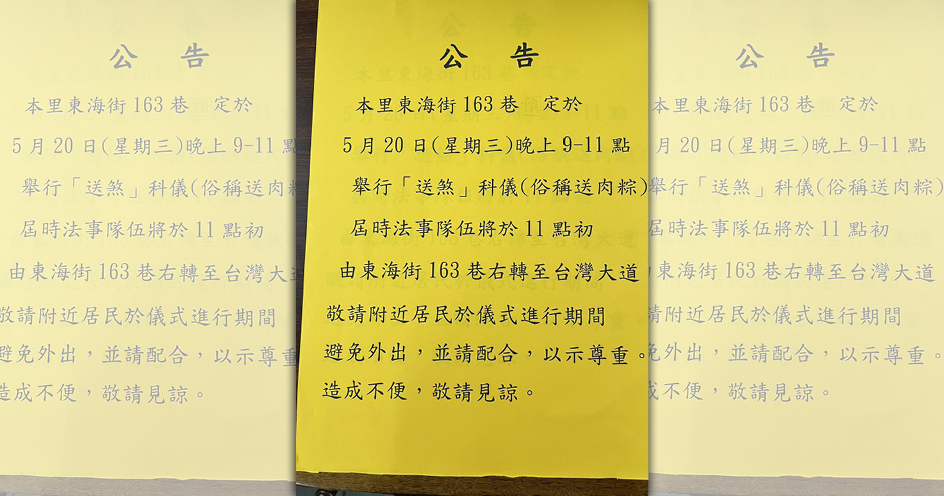 公告
本里東海街 163 巷 定於
5 月 20 日(星期三)晚上 9-11 點
舉行「送煞」科儀(俗稱送肉粽)
屆時法事隊伍將於 11 點初
由東海街 163 巷右轉至台灣大道
敬請附近居民於儀式進行期間
避免外出，並請配合，以示尊重。
造成不便，敬請見諒。